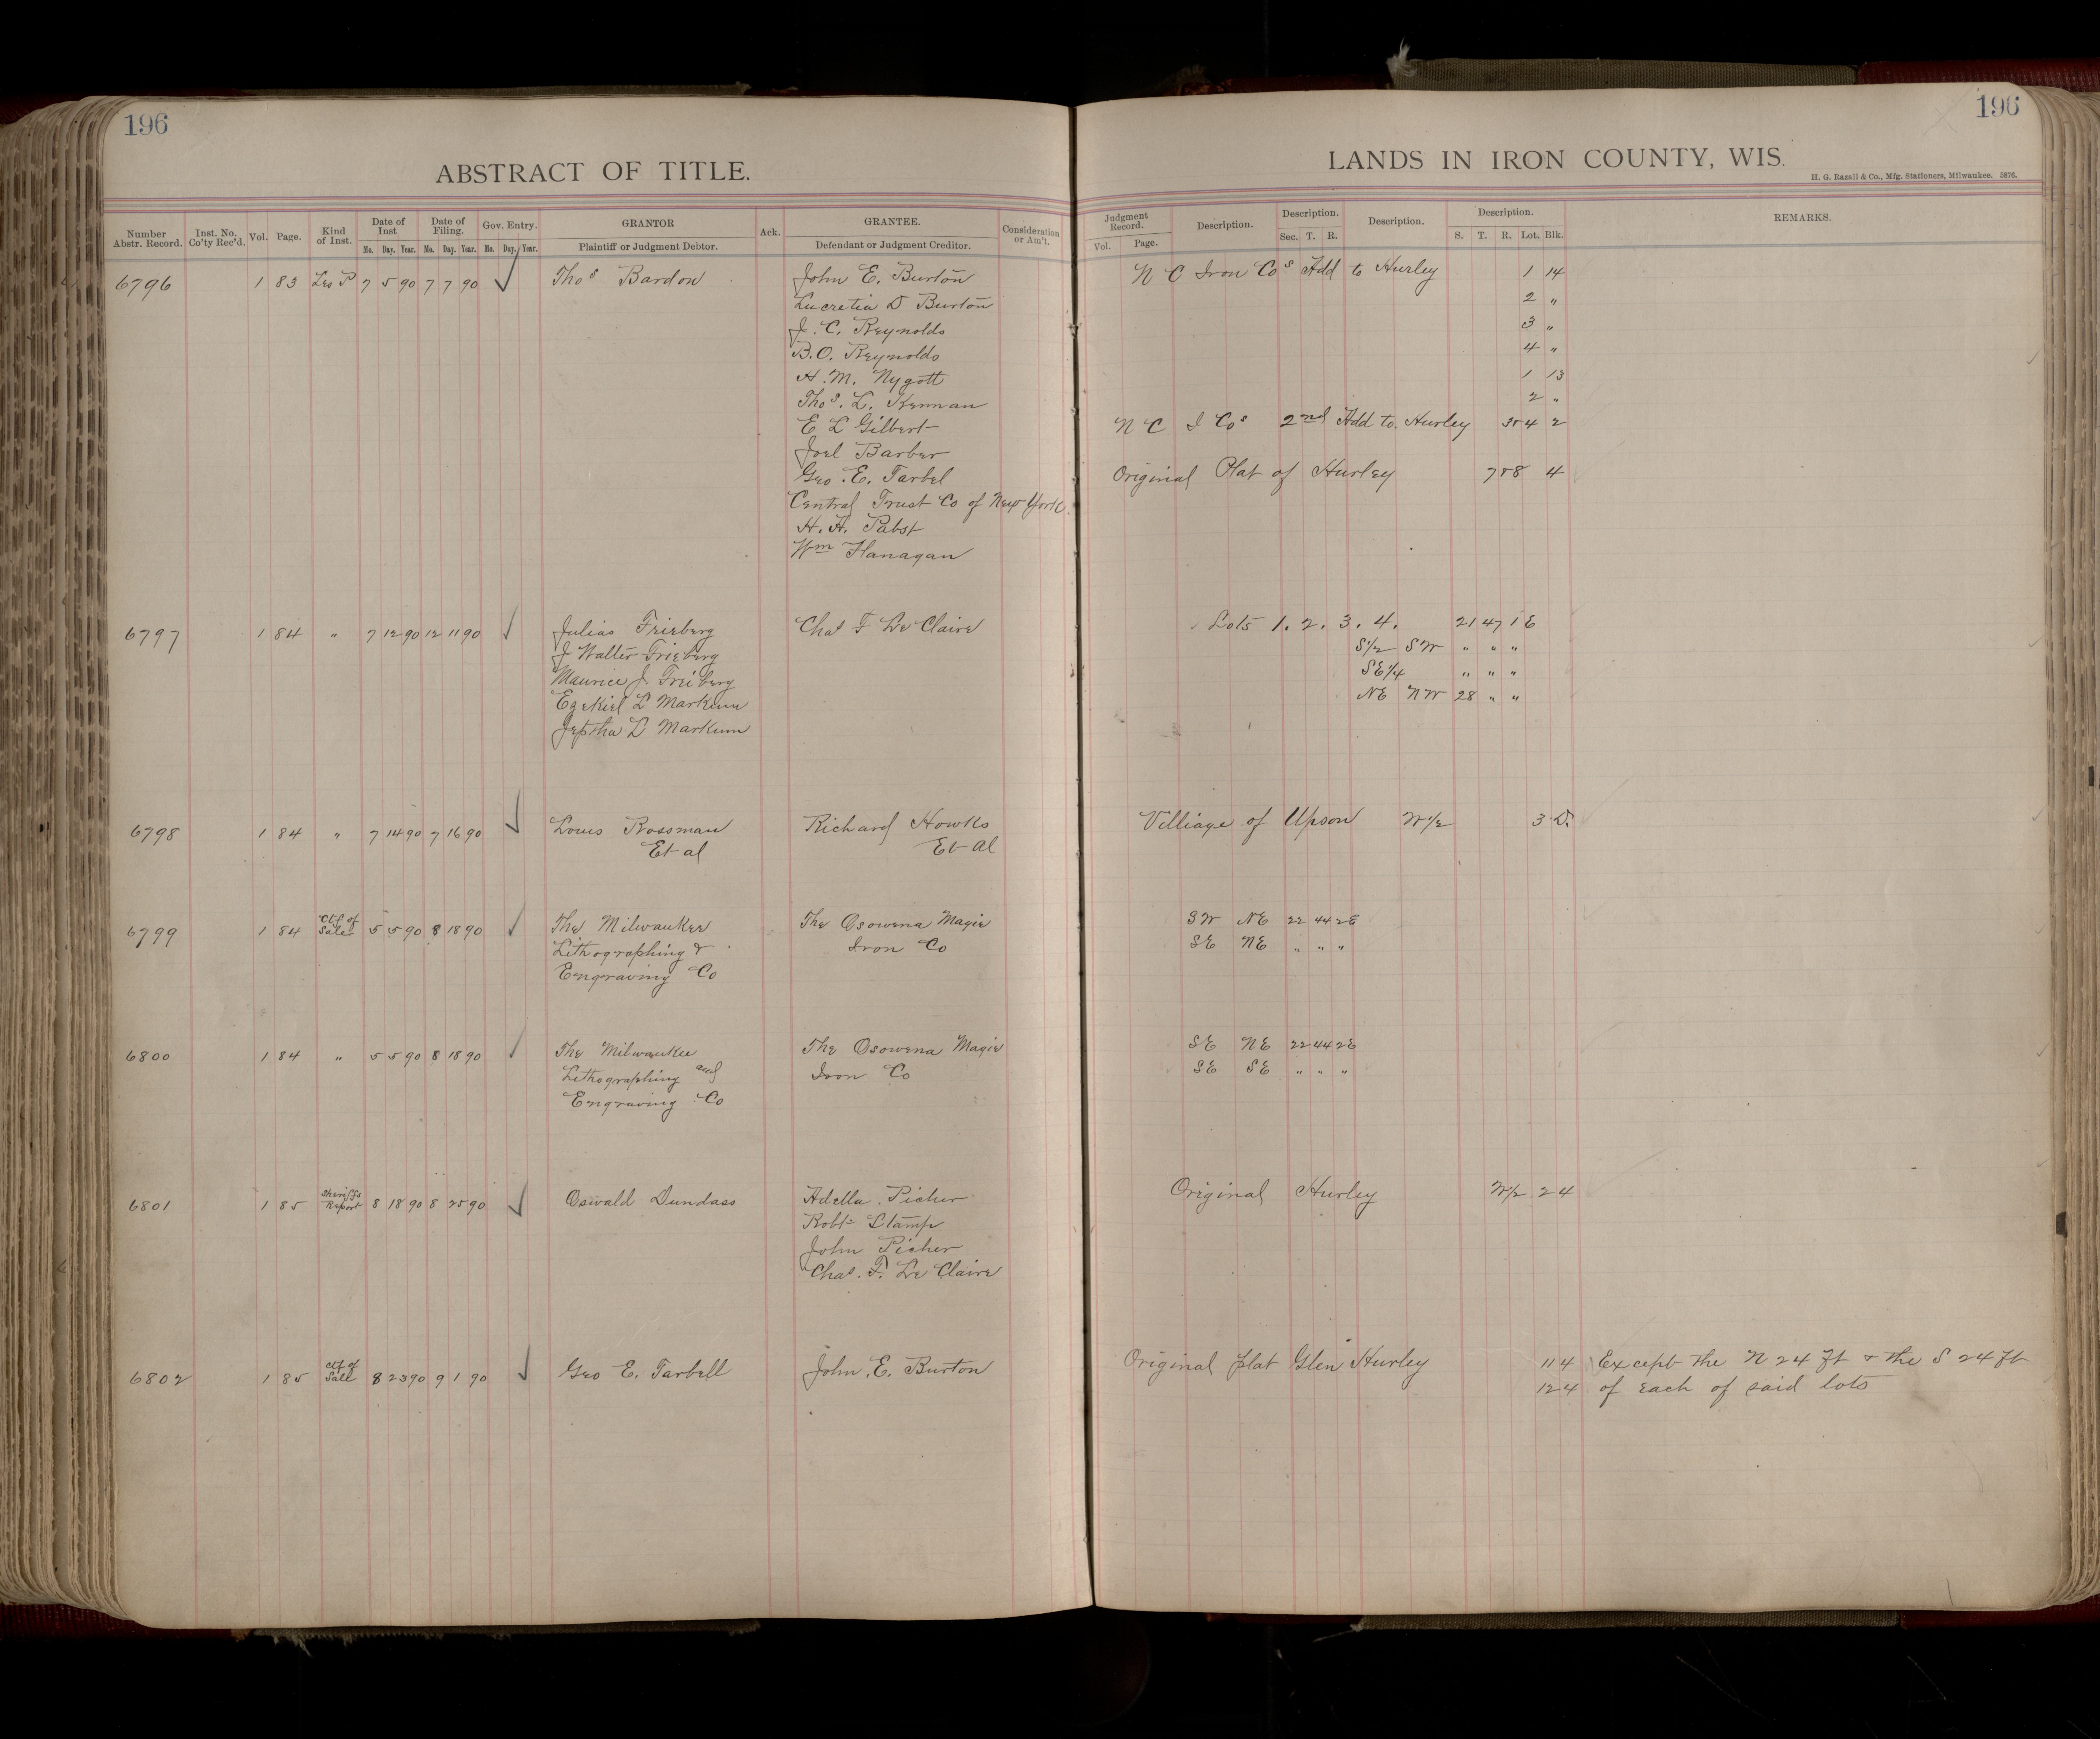 196
196
ABSTRACT OF TITLE.
LANDS IN IRON COUNTY, WIS.
H. G. Razall & Co., Mfg. Stationers, Milwaukee. 5876.
Number Abstr. Record. Inst. No. Co'ty Rec'd. Vol. Page. Kind of Inst. Date of Inst Mo. Day. Year. Date of Filing. Mo. Day. Year. Gov. Entry. Mo. Day. Year. GRANTOR Plaintiff or Judgment Debtor. Ack. GRANTEE. Defendant or Judgment Creditor. Consideration or Am't. Judgment Record. Vol. Page. Description. Description. Sec. T. R. Description. Description. S. T. R. Lot. Blk. REMARKS.
6796 1 83 Les P 7 5 90 7 7 90 ✓ Thos Bardon John E. Burton N C Iron Cos Add to Hurley 1 14
Lucretia D Burton 2 "
J. C. Reynolds 3 "
B. O. Reynolds 4 "
H. M. Nygott 1 13
Thos. L. Kennan 2 "
E L Gilbert N C I Cos 2nd Add to Hurley 3 & 4 2
Joel Barber
Geo. E. Tarbel Original Plat of Hurley 7 & 8 4
Central Trust Co of New York
H. H. Pabst
Wm Flanagan
6797 1 84 " 7 12 90 12 11 90 ✓ Julias Frieberg Chas F Le Claire Lots 1. 2. 3. 4. 21 47 1 E
J Walter Frieberg S1/2 SW " " "
Maurice J. Freiberg SE1/4 " " "
Ezekiel L Markum NE NW 28 " "
Jeptha L Markum
6798 1 84 " 7 14 90 7 16 90 ✓ Louis Rossman Richard Howks Villiage of Upson W1/2 3 D.
Et al Et al
6799 1 84 Ctf of Sale 5 5 90 8 18 90 ✓ The Milwaukee The Osowena Magie SW NE 22 44 2E
Lithographing & Iron Co SE NE " " "
Engraving Co
6800 1 84 " 5 5 90 8 18 90 ✓ The Milwaukee The Osowena Magie SE NE 22 44 2E
Lithographing and Iron Co SE SE " " "
Engraving Co
6801 1 85 Sheriffs Report 8 18 90 8 25 90 ✓ Oswald Dundass Adella Picher Original Hurley W1/2 2 4
Robt Stamp
John Picher
Chas. F. Le Claire
6802 1 85 Ctf of Sale 8 23 90 9 1 90 ✓ Geo E. Tarbell John E. Burton Original plat Glen Hurley 11 4 Except the N 24 ft & the S 24 ft
12 4 of each of said lots